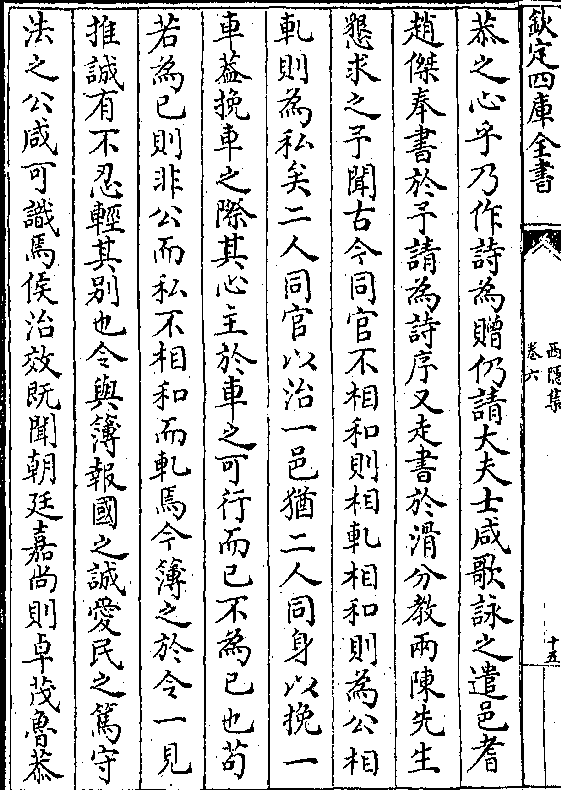 欽定四庫全書
西隱集
卷六
十五
恭之心乎乃作詩為贈仍請大夫士咸歌詠之遣邑耆
趙傑奉書於予請為詩序又走書於滑分教兩陳先生
懇求之予聞古今同官不相和則相軋相和則為公相
軋則為私矣二人同官以治一邑猶二人同身以挽一
車葢挽車之際其心主於車之可行而已不為已也苟
若為已則非公而私不相和而軋焉今簿之於令一見
推誠有不忍輕其别也令與簿報國之誠愛民之篤守
法之公咸可識焉侯治效既聞朝廷嘉尚則卓茂魯恭